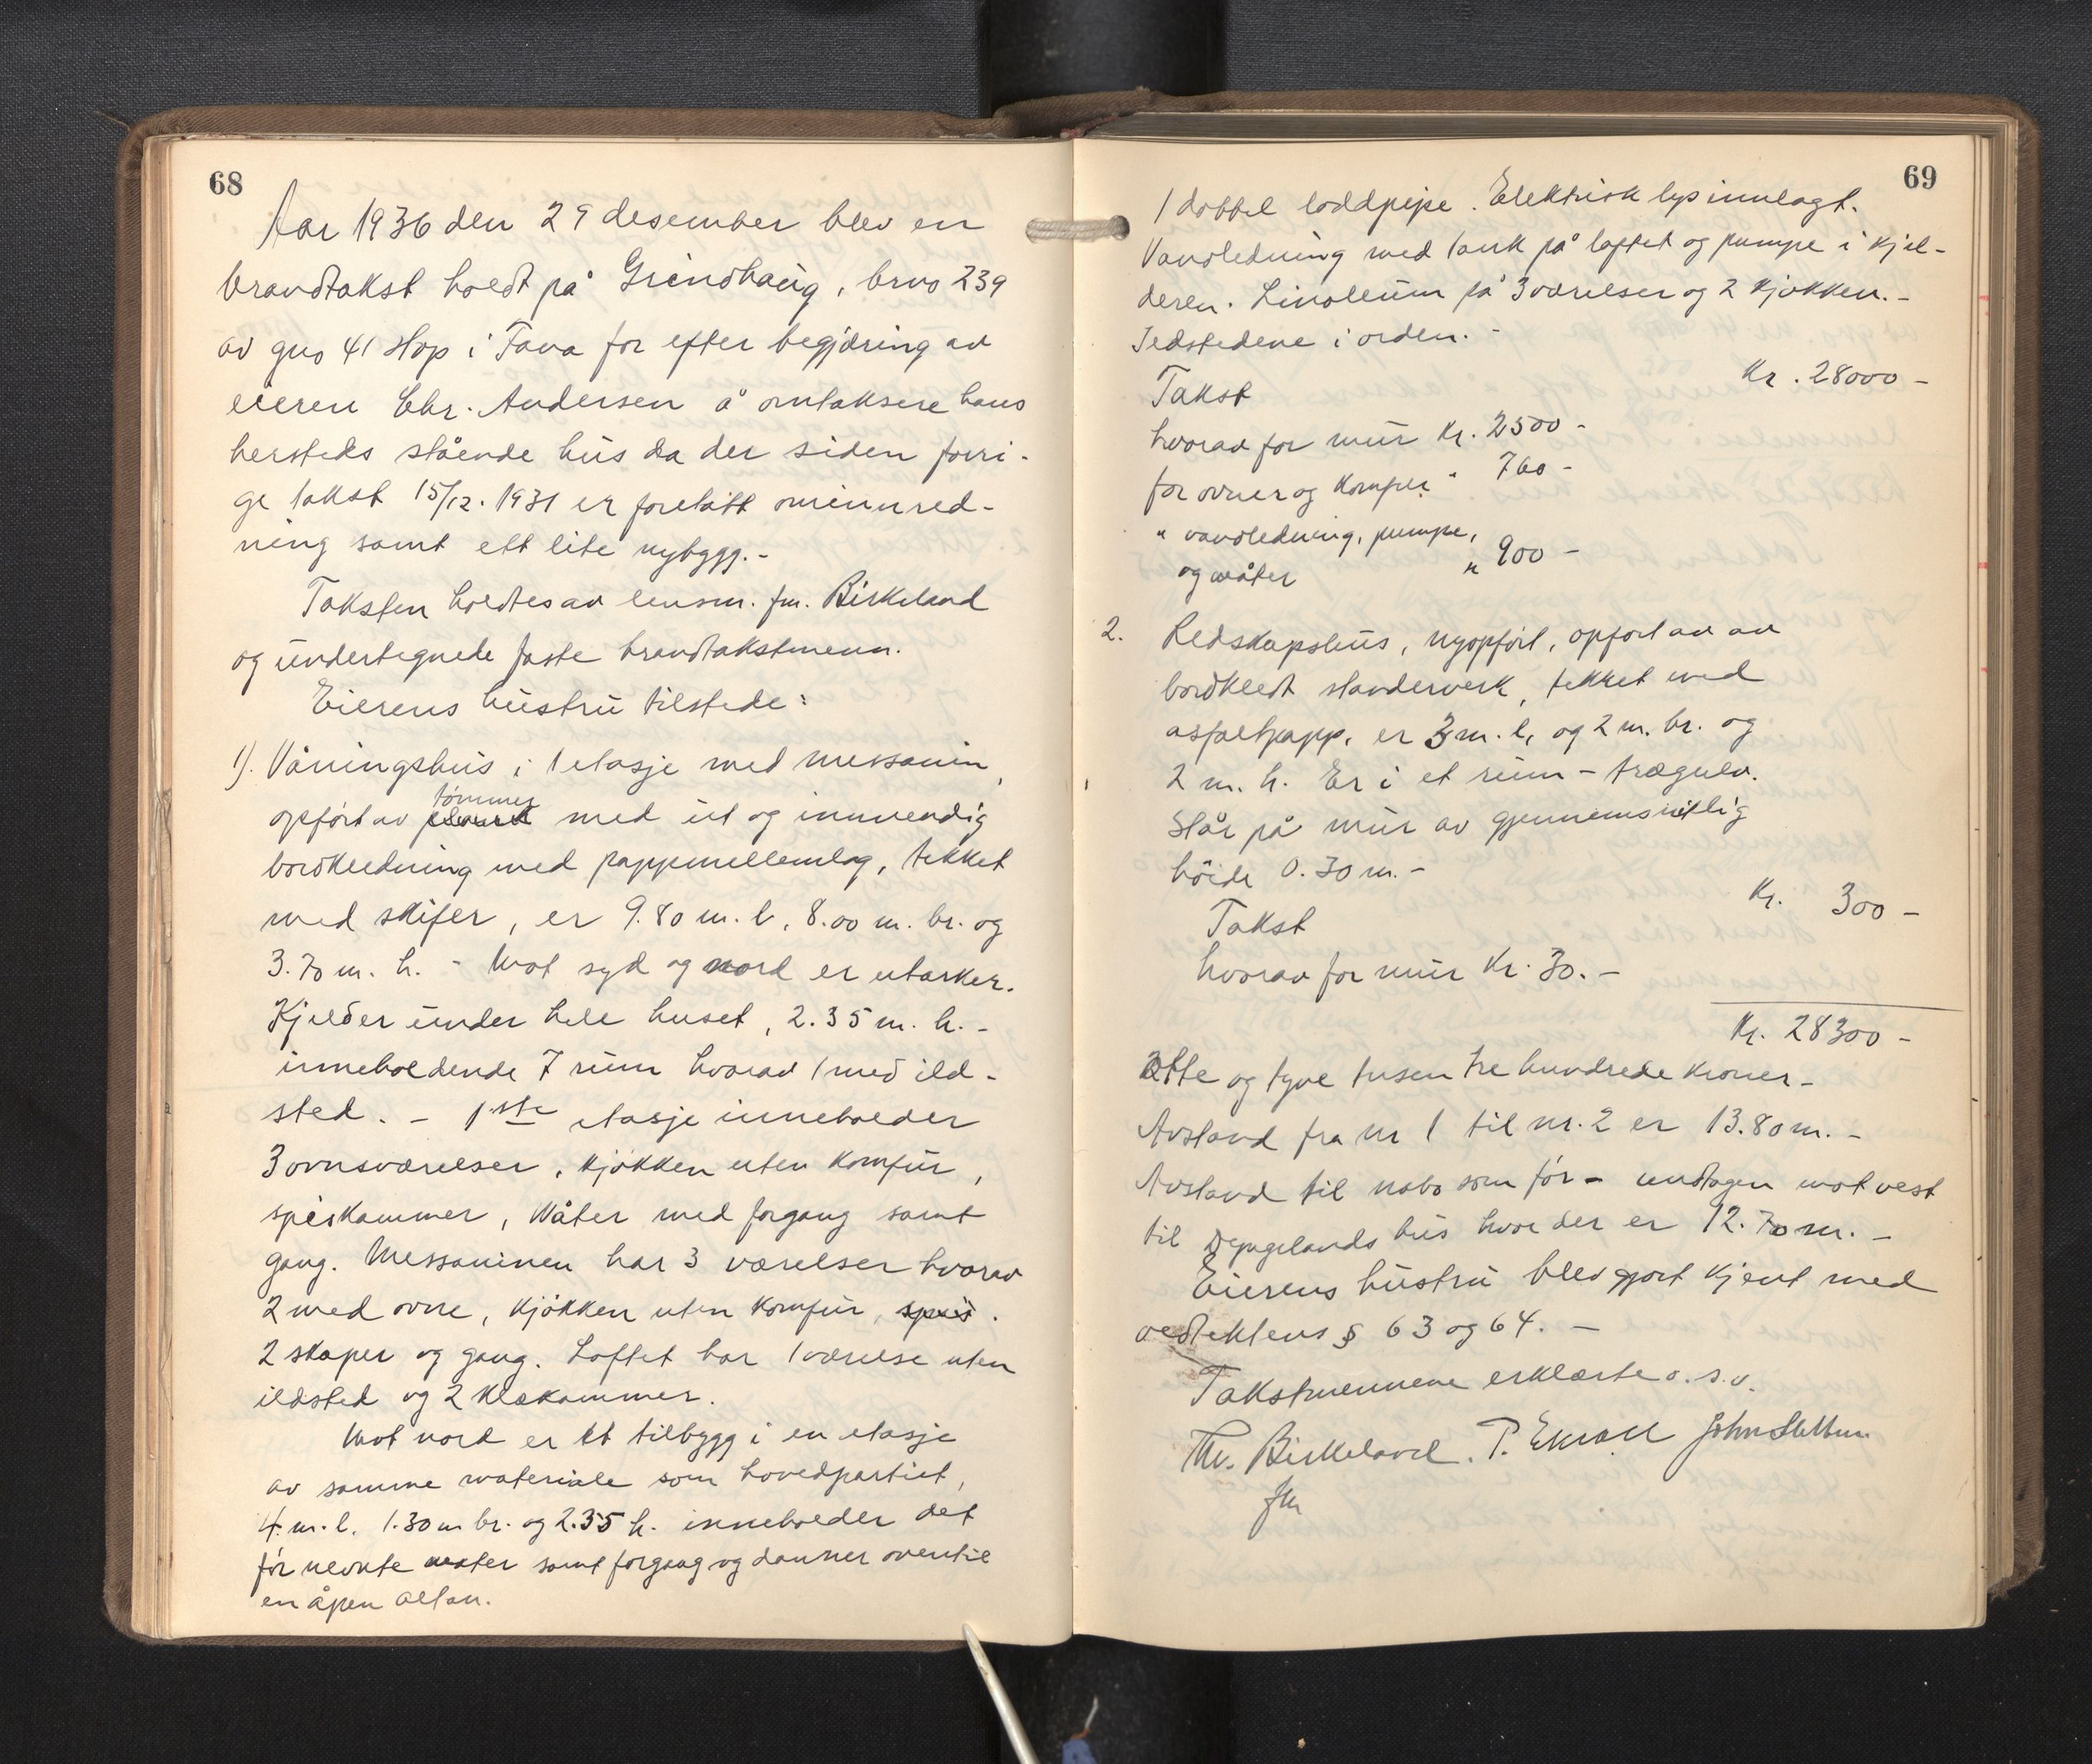 68
Aar 1936 den 29 desember blev en
brandtakst holdt på Grindhaug, brno 239
av gno 41 Hop i Fana for efter begjæring av
eieren Chr. Andersen å omtaksere hans
hersteds stående hus da der siden forri-
ge takst 15/12. 1931 er foretatt ominnred-
ning samt ett lite nybygg.-
Taksten holdtes av lensm. fm. Birkeland
og undertegnede faste brandtakstmenn.
Eierens hustru tilstede:
1). Våningshus i 1 etasje med messanin,
tømmer
opført av plank med ut og innvendig
bordkledning med pappmellemlag, tekket
med skifer, er 9.80 m. l. 8.00 m. br. og
3.70 m. h. - Mot syd og nord er utarker.
Kjelder under hele huset, 2.35 m. h. -
inneholdende 7 rum hvorav 1 med ild-
sted. - 1ste etasje inneholder
3 ovnsværelser, kjøkken uten komfur,
speiskammer, Water med forgang samt
gang. Messaninen har 3 værelser hvorav
2 med ovne, kjøkken uten komfur, speis.
2 skaper og gang. Loftet har 1 værelse uten
ildsted og 2 klækammer.
Mot nord er et tilbygg i en etasje
av samme materiale som hovedpartiet,
4 m. l. 1.30 m br. og 2.35 h. inneholder det
før nevnte water samt forgang og danner oventil
en åpen altan.
69
1 dobbel loddpipe. Elektrisk lys innlagt.
Vandledning med tank på loftet og pumpe i kjel-
deren. Linoleum på 3 værelser og 2 kjøkken.-
Ildstedene i orden.-
Takst Kr. 28000 -
hvorav for mur Kr. 2500 -
for ovner og komfur " 760 -
" vandledning, pumpe,
og water " 900 -
2. Redskapshus, nyopført, opført av av
bordkledt standerverk, tekket med
asfaltpapp, er 3 m. l. og 2 m. br. og
2 m. h. Er i et rum - trægulv.
Står på mur av gjennemsnitlig
høide 0.30 m.-
Takst Kr. 300 -
hvorav for mur Kr. 30.-
Kr. 28300 -
Otte og tyve tusen tre hundrede kroner-
Avstand fra nr 1 til nr. 2 er 13.80 m.-
Avstand til nabo som før - undtagen mot vest
til Dyngelands hus hvor der er 12.70 m.-
Eierens hustru blev gjort kjent med
vedtektens § 63 og 64.-
Takstmennene erklærte o. s. v.
Thv. Birkeland. P. Ekroll John Sletten
fm